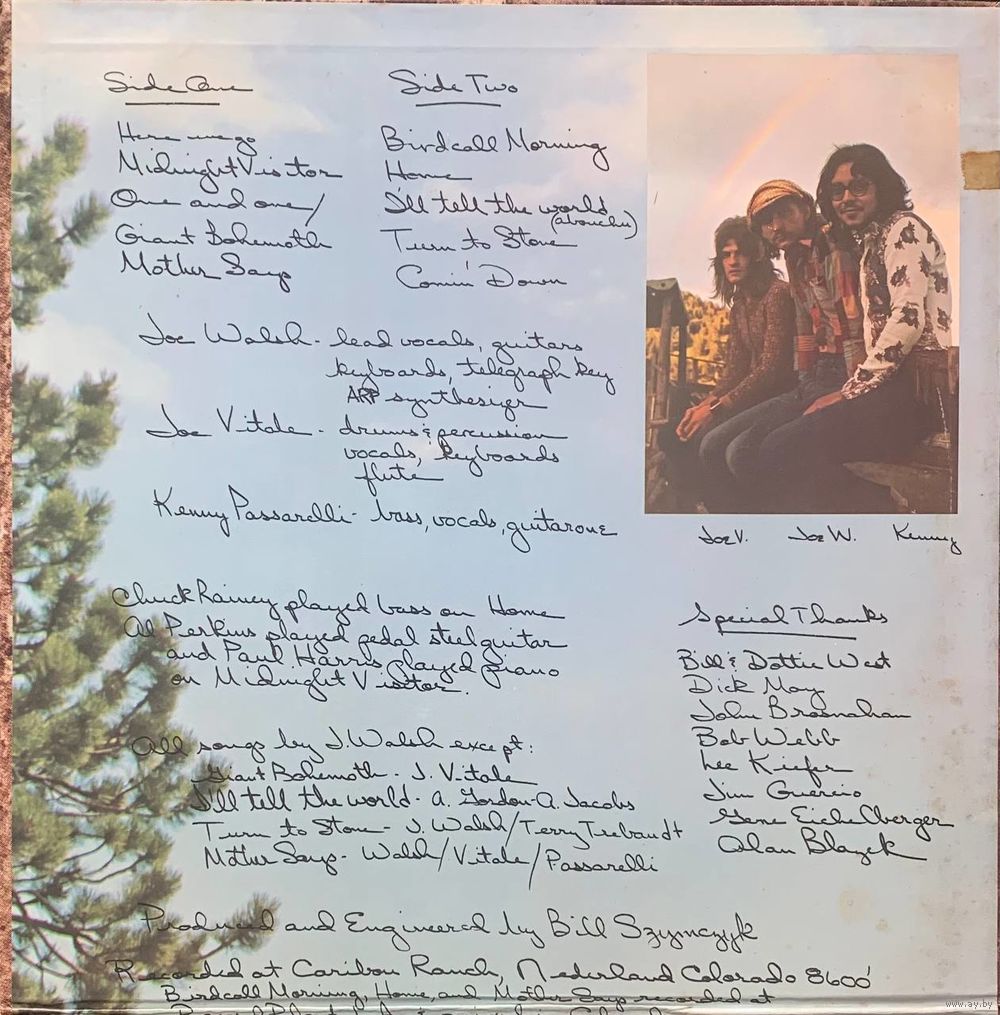 Side One
Here we go
Midnight Visitor
One and one /
Giant Bohemoth
Mother Says
Side Two
Birdcall Morning
Home
I'll tell the world
(aboucha)
Turn to Stone
Comin' Down
Joe Walsh - lead vocals, guitars
keyboards, telegraph key
ARP synthesizer
Joe Vitale - drums & percussion
vocals, keyboards
flute
Kenny Passarelli - bass, vocals, guitarone
Joe V. Joe W. Kenny
Chuck Rainey played bass on Home
Al Perkins played pedal steel guitar
and Paul Harris played piano
on Midnight Visitor.
All songs by J. Walsh except:
Giant Bohemoth - J. Vitale
I'll tell the world - A. Gordon - A. Jacobs
Turn to Stone - J. Walsh / Terry Trebandt
Mother Says - Walsh / Vitale / Passarelli
Special Thanks
Bill & Dottie West
Dick May
John Brosnahan
Bob Webb
Lee Kiefer
Jim Guercio
Gene Eichelberger
Alan Blazek
Produced and Engineered by Bill Szymczyk
Recorded at Caribou Ranch, Nederland Colorado 8600'
Birdcall Morning, Home, and Mother Says recorded at
www.ay.by